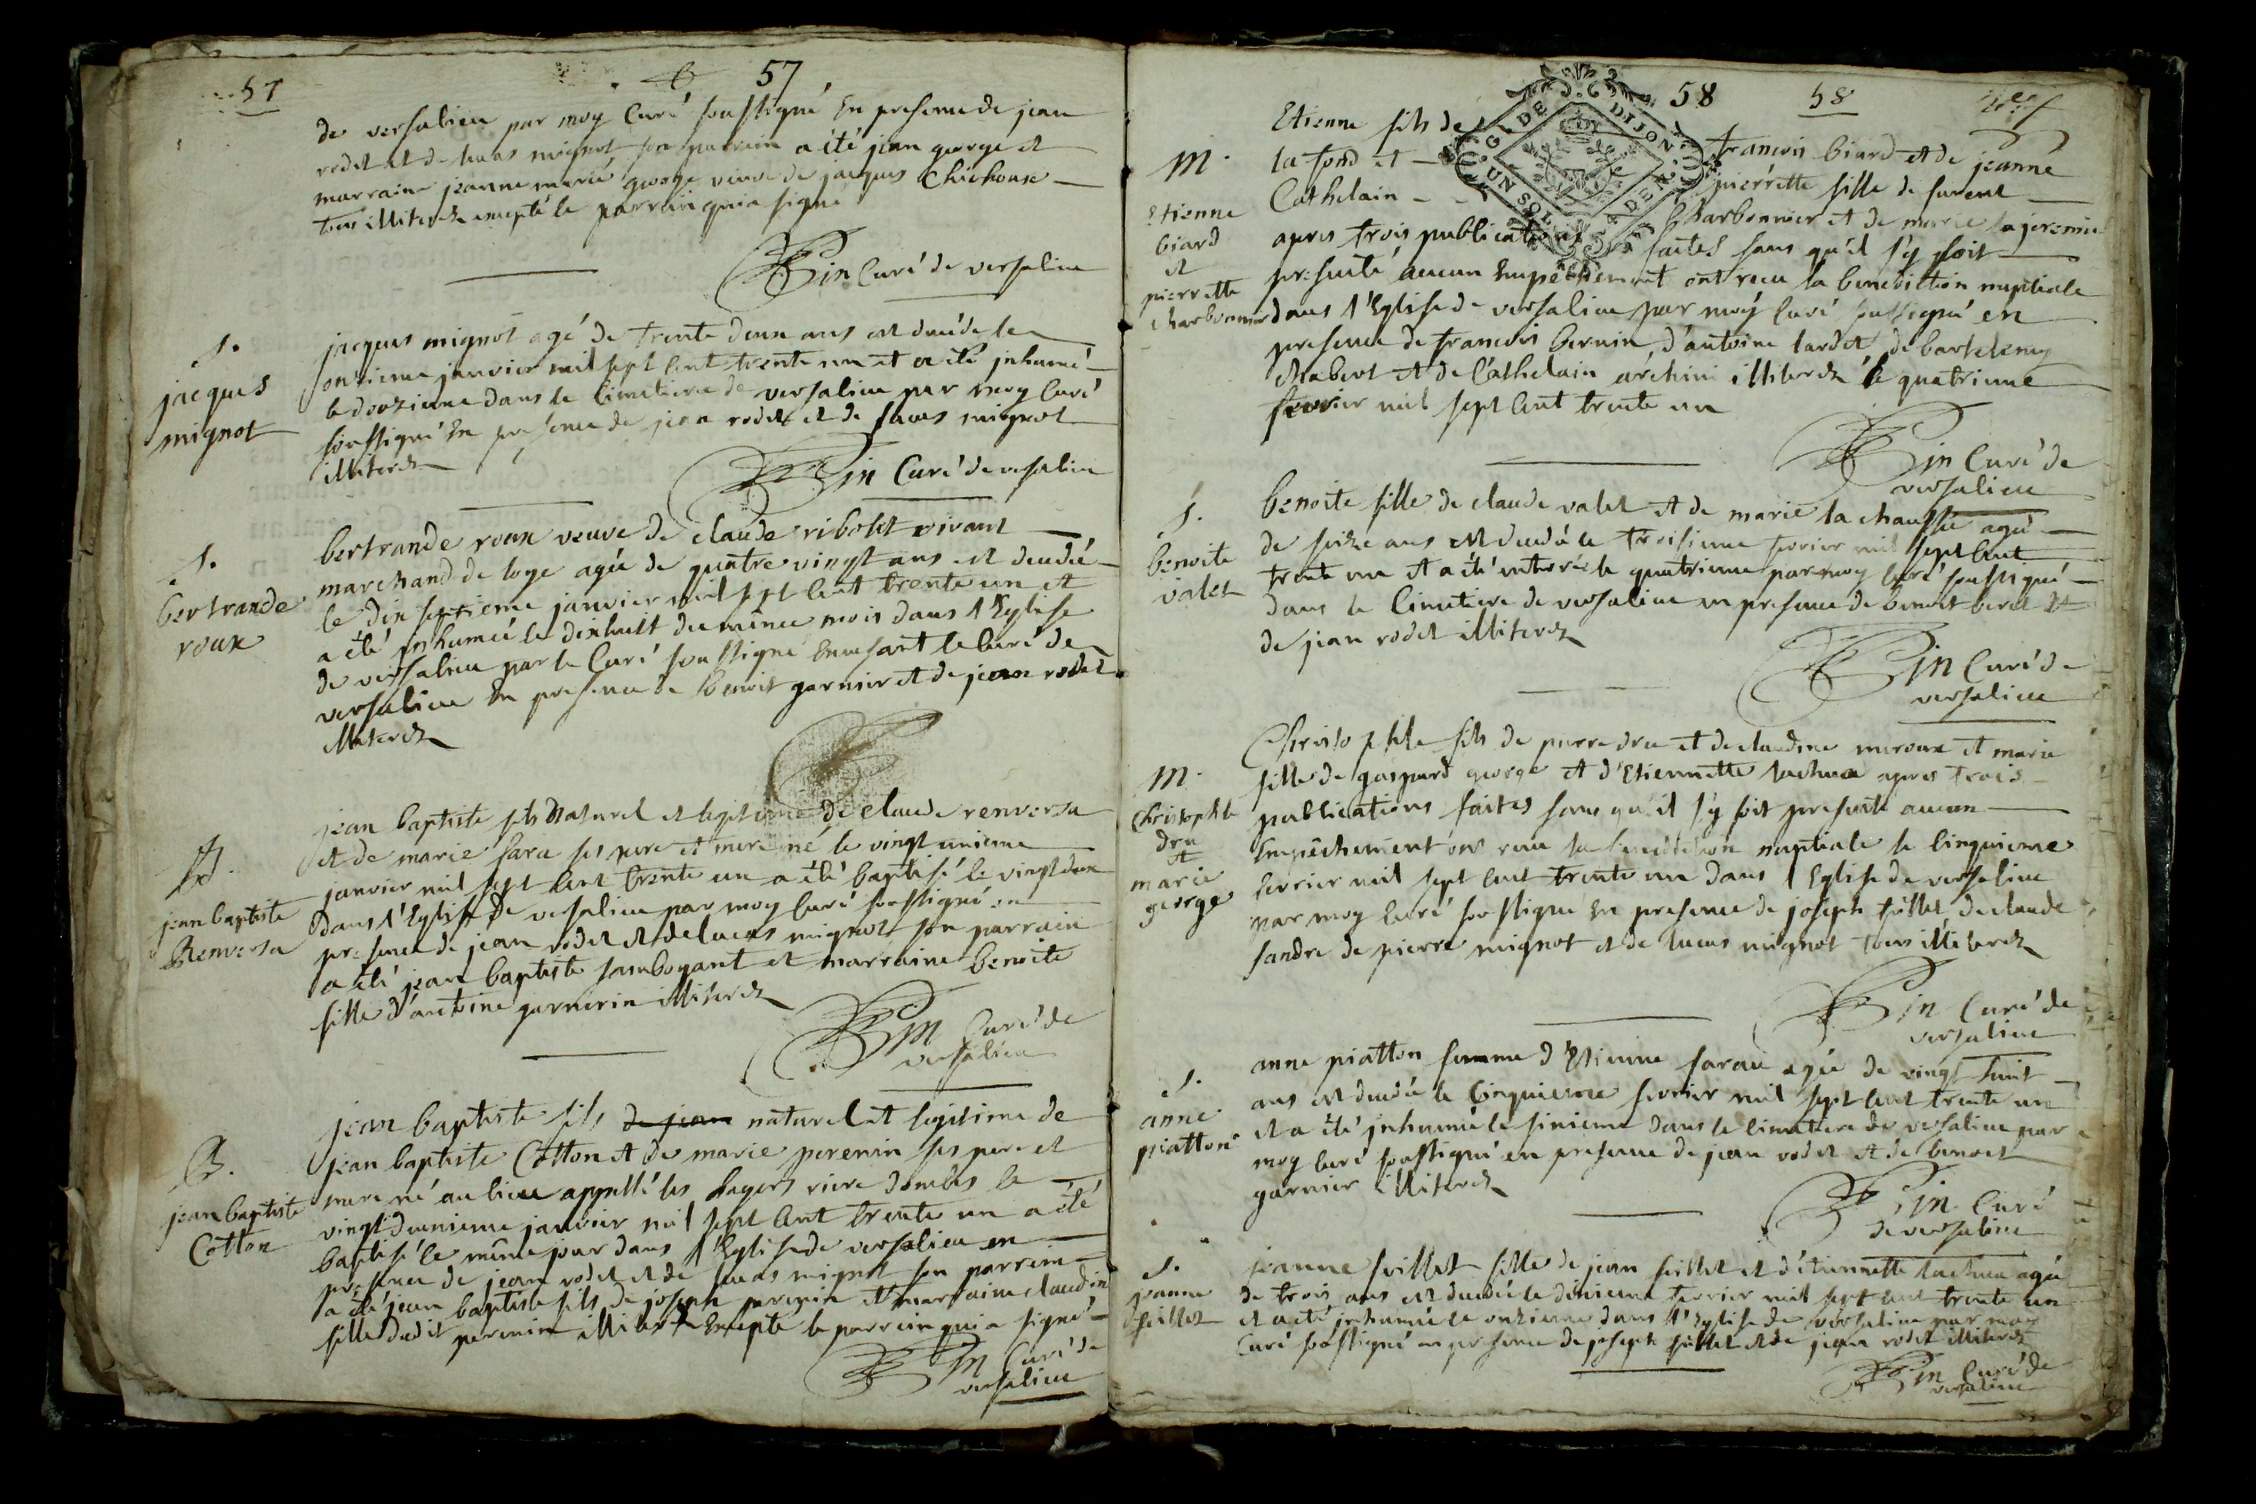 57
57
de versalieu par moy Curé soussigné En presence de jean
rodet et de lucas mignot son parrain a été jean george et
marraine jeanne marie george veuve de jacques Chichoux
tous illiterez excepté le parrain qui a signé
Bin Curé de versalieu
s.
jacques
mignot
jacques mignot agé de trente deux ans est decédé le
onzieme janvier mil sept cent trente un et a été jnhumé
le douzieme dans le cimetiere de versalieu par moy Curé
soussigné En presence de jean rodet et de lucas mignot
illiterez
Bin Curé de versalieu
s.
bertrande
roux
bertrande roux veuve de claude ribollet vivant
marchand de loye agée de quatre vingt ans est decedée
le dix septieme janvier mil sept cent trente un et
a été jnhumée le dixhuit du même mois dans l'Eglise
de versalieu par le Curé soussigné le curé de
versalieu En presence de Benoit garnier et de jean rodet
illiterez
B.
jean baptiste
Renversa
jean baptiste fils Naturel et legitime de claude renversa
et de marie sara ses pere et mere né le vingt unieme
janvier mil sept cent trente un a été baptisé le vingt deux
dans l'Eglise De versalieu par moy curé soussigné en
presence de jean rodet et de lucas mignot son parrain
a été jean baptiste jamboyant et marraine benoite
fille d'antoine garnerin illiterez
Bin Curé de
versalieu
B.
jean baptiste
Cotton
jean baptiste fils de jean naturel et legitime de
jean baptiste Cotton et de marie perenin ses pere et
mere né au lieu appellé les riere dombes le
vingt deuxieme janvier mil sept cent trente un a été
baptisé le même jour dans l'Eglise de versalieu en
presence de jean rodet et de lucas mignot son parrein
a été jean baptiste fils de joseph perenin et marraine claudine
fille dudit perenin illiterez Excepté le parrein qui a signé
Bin Curé de
versalieu
58
58
GDE DIJON
UN SOL 4 DEN
m.
Etienne
biard
et
pierrette
charbonnier
Etienne fils de francois biard et de jeanne
la fond et pierrette fille de furent
Cathelain charbonnier et de marie la jeremie
apres trois publications faites sans qu'il s'y soit
presenté aucun Empêchement ont recu la benediction nuptiale
dans l'Eglise de versalieu par moy curé soussigné en
presence de francois bernin d'antoine lardet de bartelemy
chabert et de Cathelain archini illiterez le quatrieme
fevrier mil sept cent trente un
Bin Curé de
versalieu
s.
benoite
valet
benoite fille de claude valet et de marie la chaussée agée
de seize ans est decedée le troisieme fevrier mil sept cent
trente un et a été enterrée le quatrieme par moy curé soussigné
dans le Cimetiere de versalieu en presence de benoit beret et
de jean rodet illiterez
Bin Curé de
versalieu
m.
Christophle
dru
et
marie
george
Christophle fils de pierre dru et de claudine meroux et marie
fille de gaspard george et d'Etiennette tachua apres trois
publications faites sans qu'il s'y soit presenté aucun
Empêchement ont recu la benediction nuptiale le cinquieme
fevrier mil sept cent trente un dans l'Eglise de versalieu
par moy curé soussigné En presence de joseph feillet de claude
sandre de pierre mignot et de lucas mignot tous illiterez
Bin Curé de
versalieu
s.
anne
piatton
anne piatton femme d'Etienne farau agée de vingt huit
ans est decedée le Cinquieme fevrier mil sept cent trente un
et a été jnhumée le sixieme dans le cimetiere de versalieu par
moy curé soussigné en presence de jean rodet et de benoit
garnier illiterez
Bin Curé
de versalieu
s.
jeanne
feillet
jeanne feillet fille de jean feillet et d'étiennette tachua agée
de trois ans est decedée le dixieme fevrier mil sept cent trente un
et a été jnhumée le onzieme dans l'Eglise de versalieu par moy
Curé soussigné en presence de joseph feillet et de jean rodet illiterez
Bin Curé de
versalieu